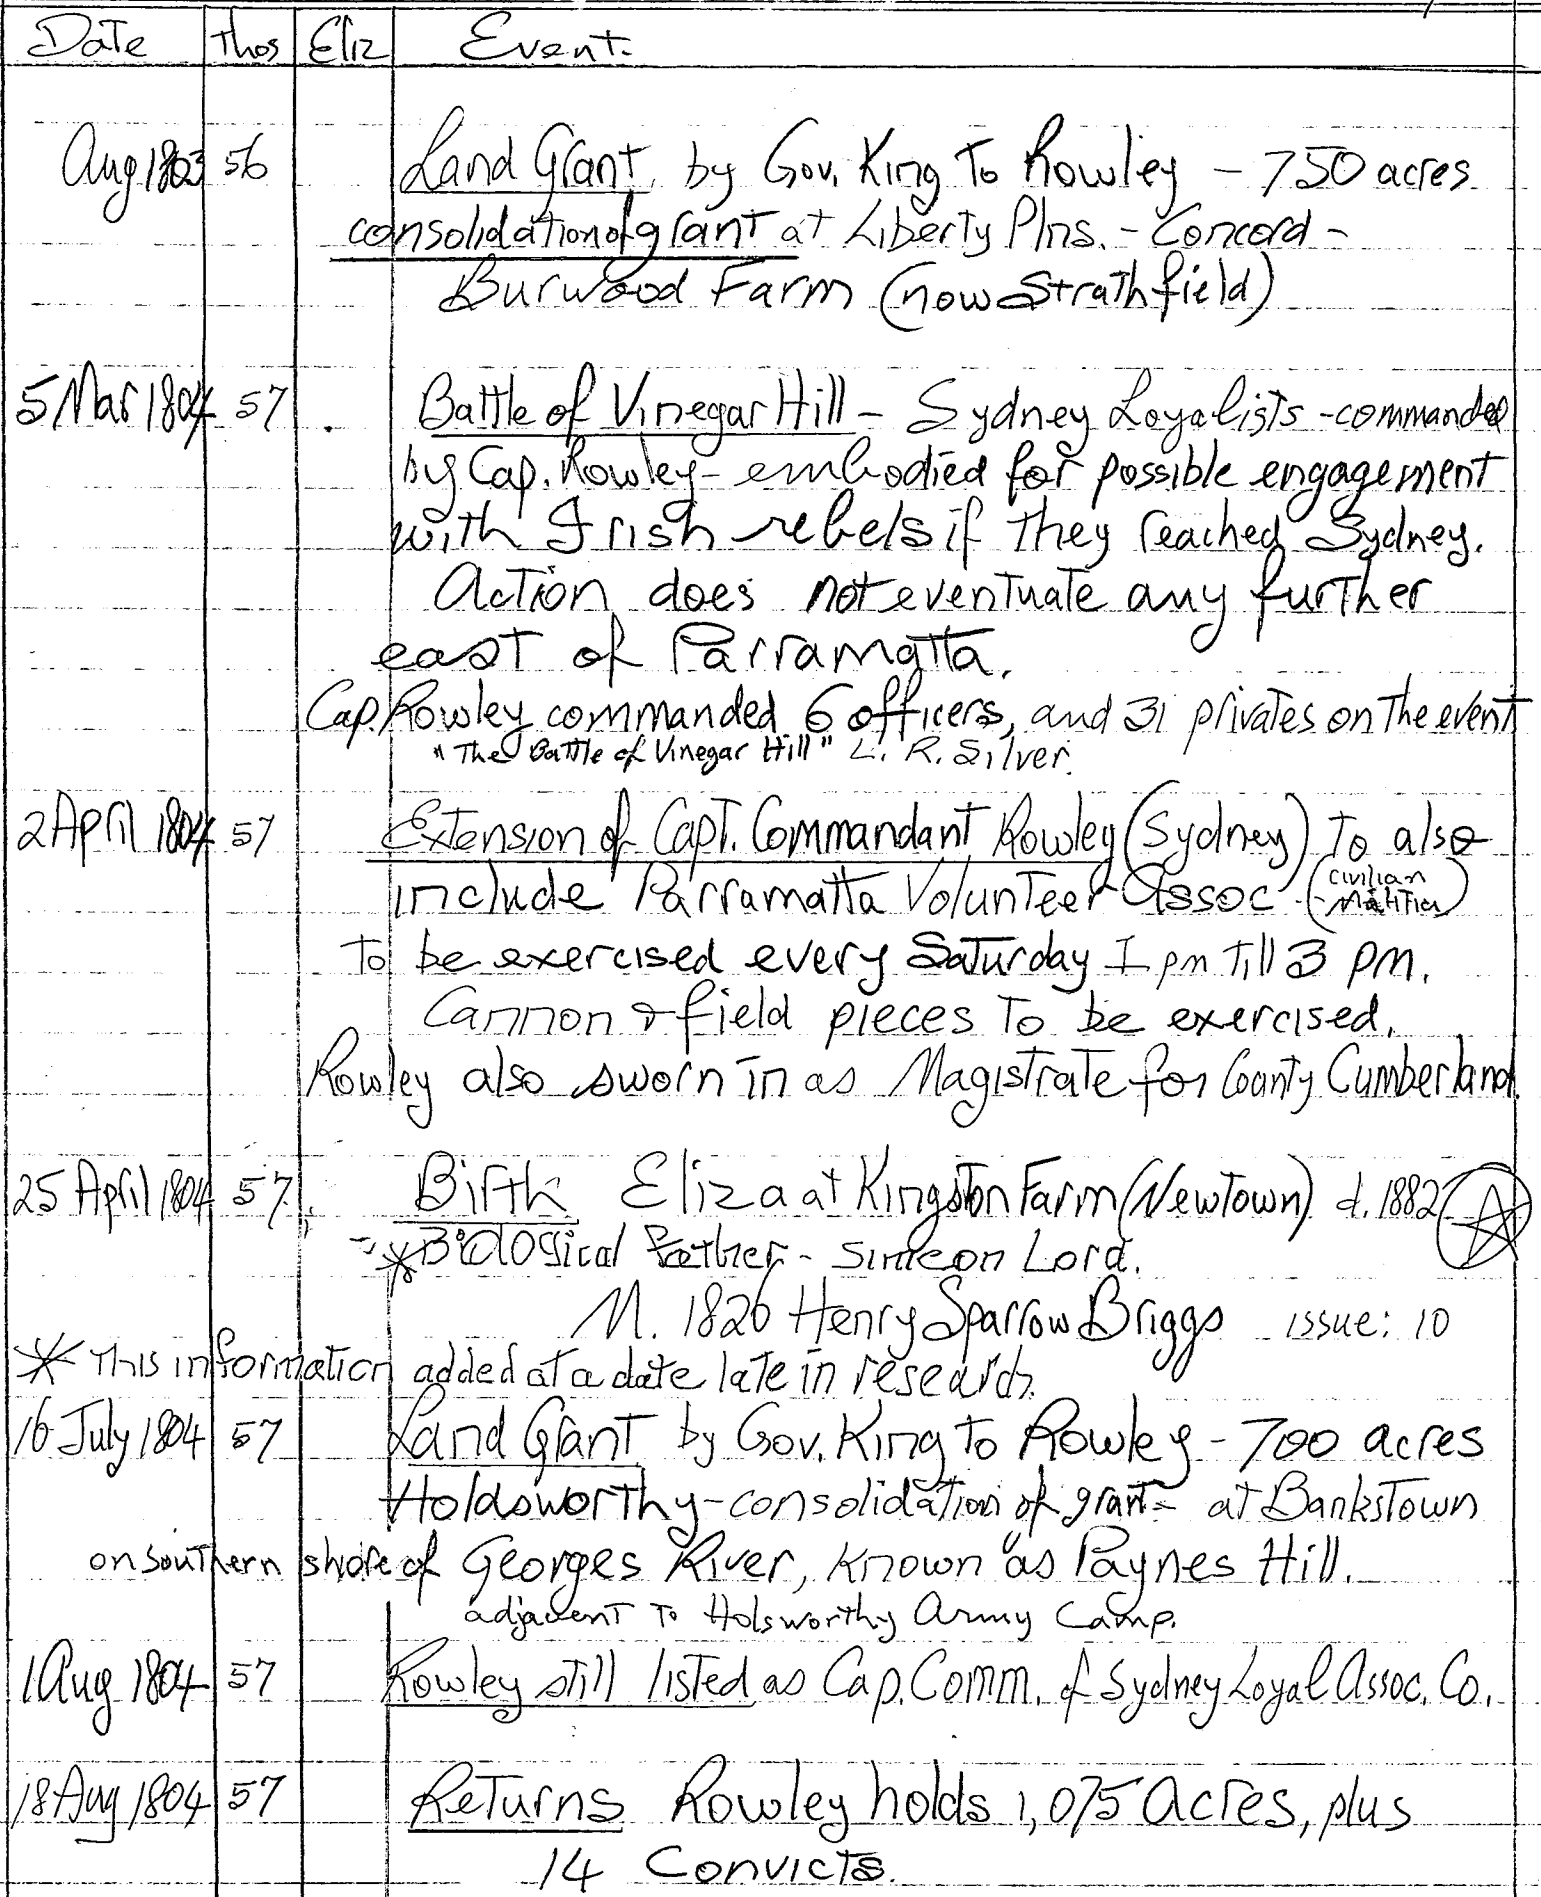 Date Thos Eliz Event.
Aug 1803 56 Land Grant by Gov. King to Rowley - 750 acres
consolidation of grant at Liberty Plns. - Concord -
Burwood Farm (now Strathfield)
5 Mar 1804 57 Battle of Vinegar Hill - Sydney Loyalists - commanded
by Cap. Rowley - embodied for possible engagement
with Irish rebels if they reached Sydney.
Action does not eventuate any further
east of Parramatta.
Cap. Rowley commanded 6 officers, and 31 privates on the event
"The Battle of Vinegar Hill" L. R. Silver.
2 April 1804 57 Extension of Capt. Commandant Rowley (Sydney) to also
include Parramatta Volunteer Assoc (civilian
militia)
to be exercised every Saturday 1 pm till 3 pm.
Cannon & field pieces to be exercised.
Rowley also sworn in as Magistrate for County Cumberland.
25 April 1804 57 Birth Eliza at Kingston Farm (Newtown) d. 1882
* Biological Father - Simeon Lord.
M. 1826 Henry Sparrow Briggs issue: 10
* This information added at a date late in research.
16 July 1804 57 Land Grant by Gov. King to Rowley - 700 acres
Holdsworthy - consolidation of grant - at Bankstown
on southern shore of Georges River, known as Paynes Hill.
adjacent to Holsworthy Army Camp.
1 Aug 1804 57 Rowley still listed as Cap. Comm. of Sydney Loyal Assoc. Co.
18 Aug 1804 57 Returns Rowley holds 1,075 Acres, plus
14 Convicts.